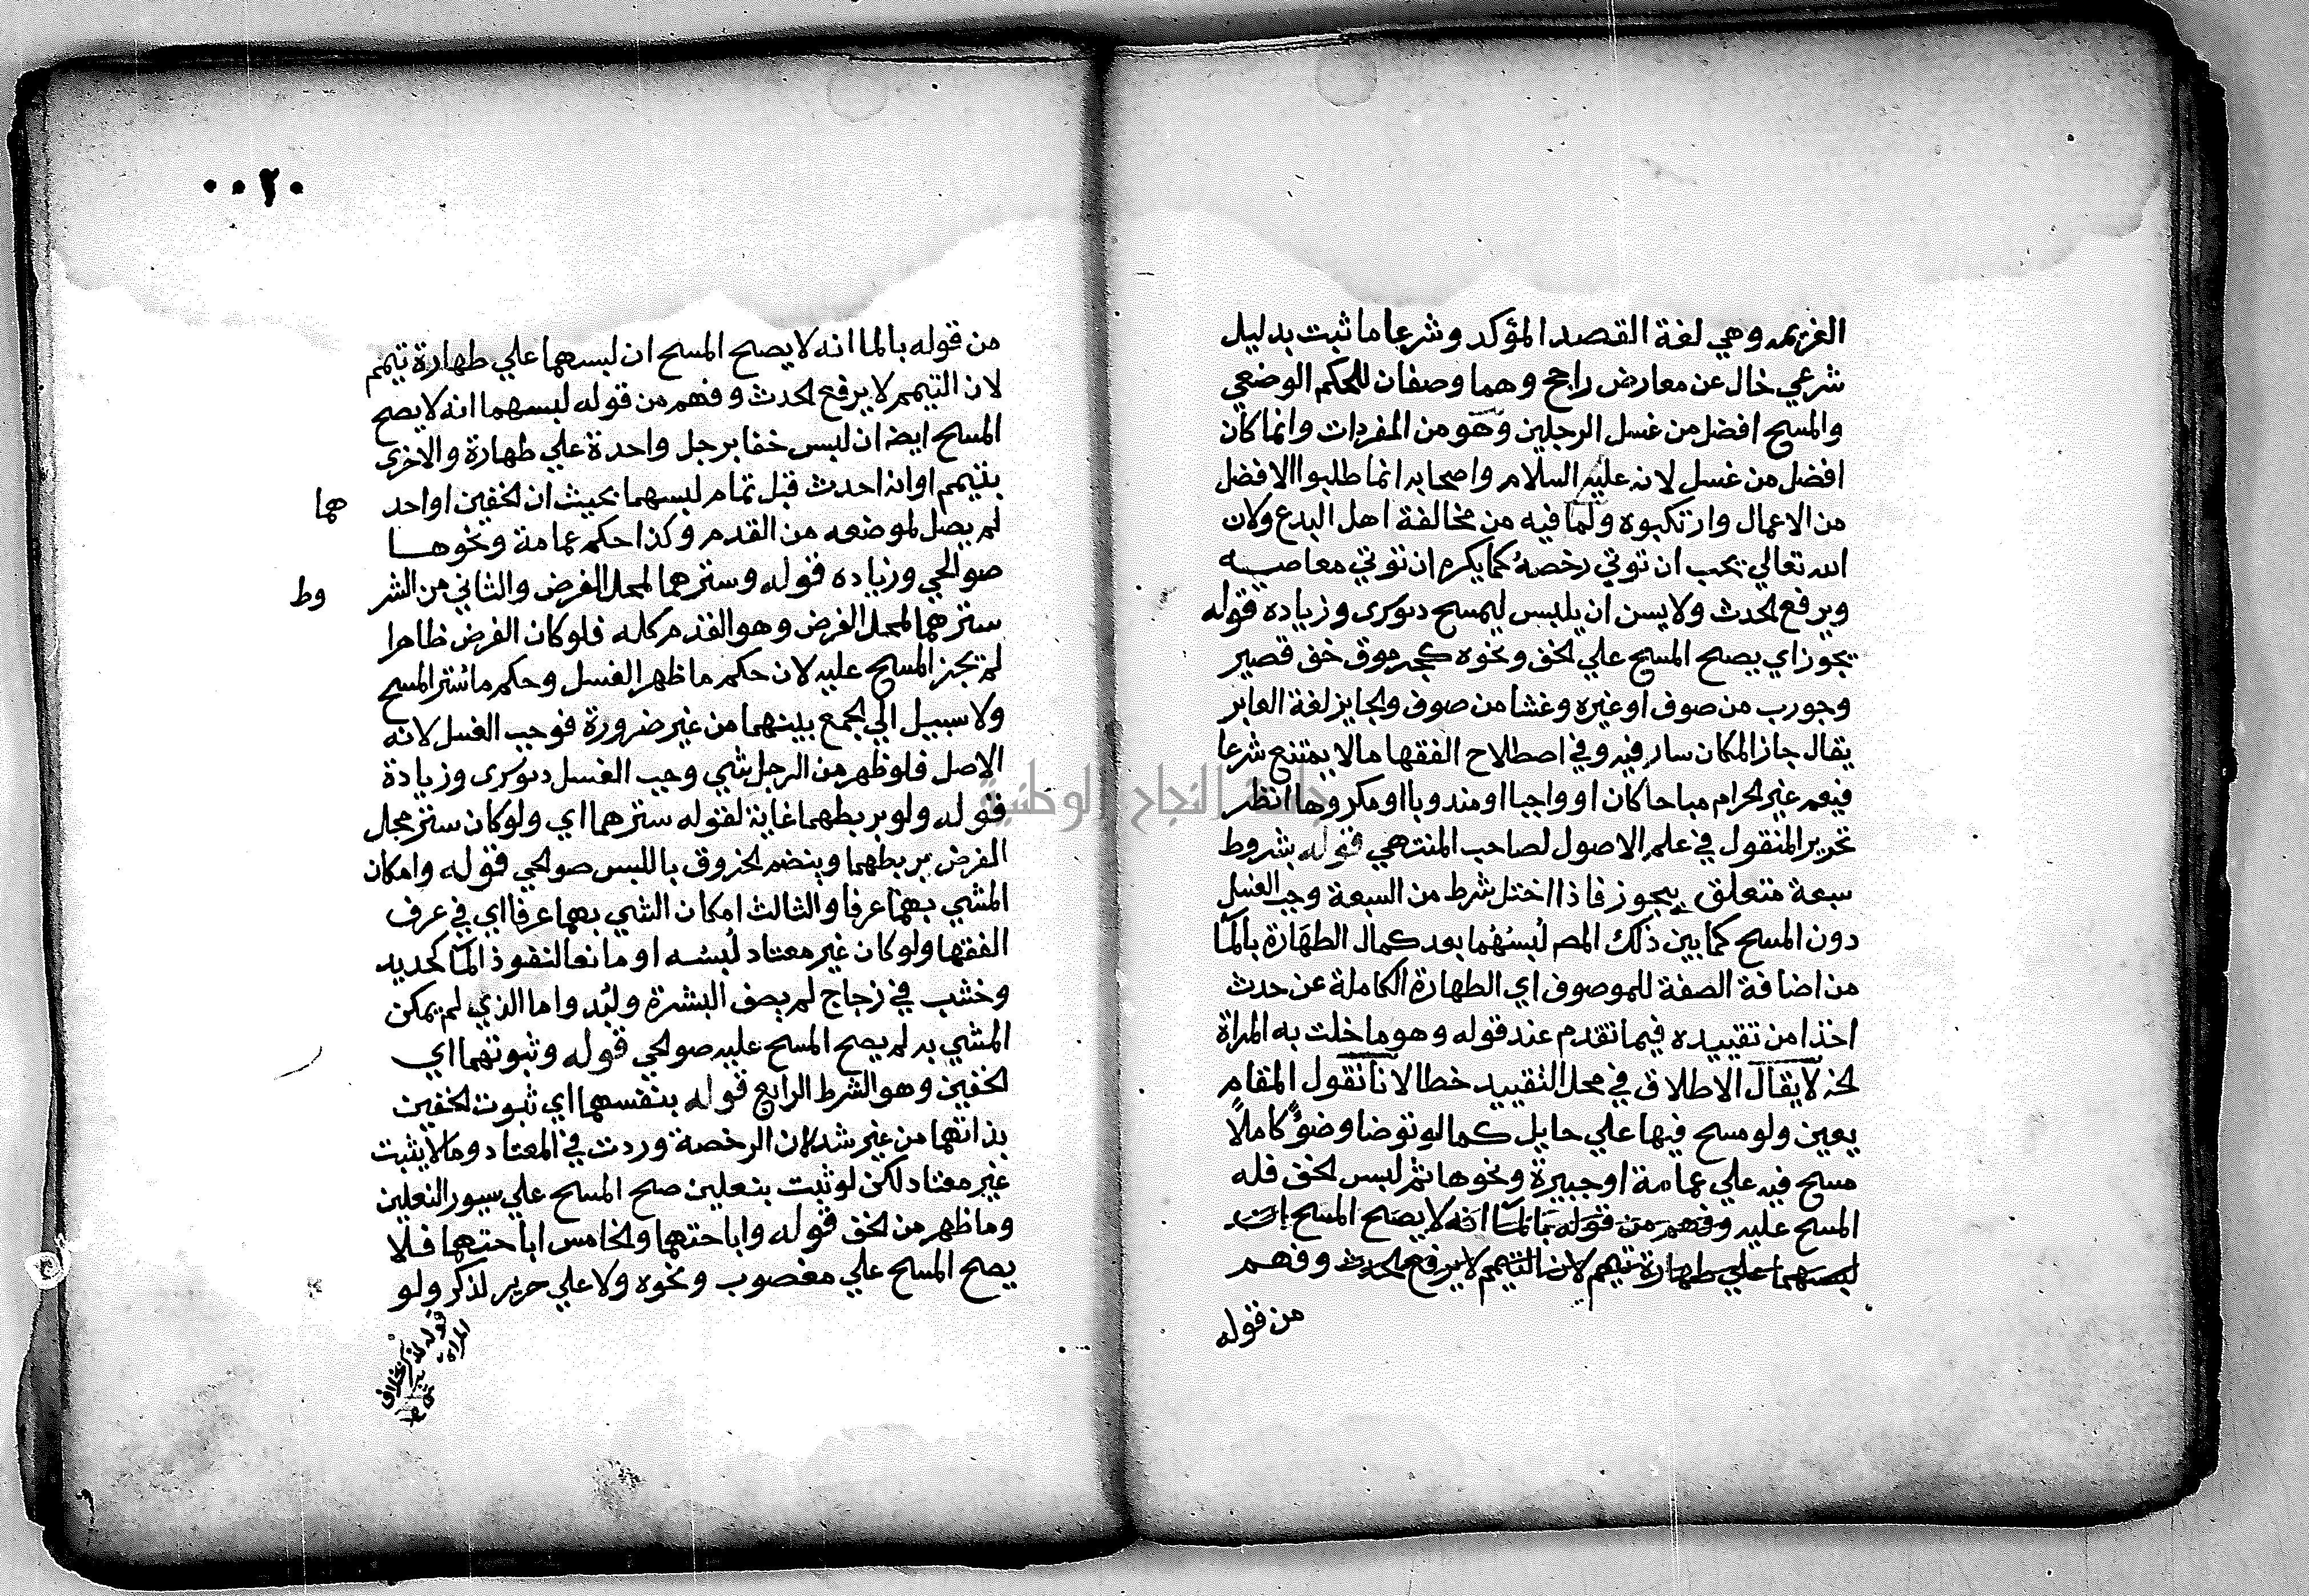 العزيمه وهي لغة القصد المؤكد وشرعا ما ثبت بدليل
شرعي خال عن معارض راجح وهما وصفان للحكم الوضعي
والمسح افضل من غسل الرجلين وهو من المفردات وانما كان
افضل من غسل لانه عليه السلام واصحابه انما طلبوا الافضل
من الاعمال وارتكبوه ولما فيه من مخالفة اهل البدع ولان
الله تعالي يحب ان توتي رخصه كما يكره ان توتي معاصيه
ويرفع الحدث ولا يسن ان يلبس ليمسح دنوشرى وزياده قوله
يجوز اي يصح المسح علي الخف ونحوه كجرموق خف قصير
وجورب من صوف او غيره وغشا من صوف والجايز لغة العابر
يقال جاز المكان سار فيه وفي اصطلاح الفقها ما لا يمتنع شرعا
فيعم غير الحرام مباحا كان او واجبا او مندوبا او مكروها انظر
تحرير المنقول في علم الاصول لصاحب المنتهي قوله بشروط
سبعة متعلق بيجوز فاذا اختل شرط من السبعة وجب الغسل
دون المسح كما بين ذلك المص لبسهما بعد كمال الطهارة بالما
من اضافة الصفة للموصوف اي الطهارة الكاملة عن حدث
اخذا من تقييده فيما تقدم عند قوله وهو ما خلت به المراة
الخ لا يقال الاطلاق في محل التقييد خطا لانا نقول المقام
يعين ولو مسح فيها علي حايل كما لو توضا وضوءً كاملاً
مسح فيه علي عمامة او جبيرة ونحوها ثم لبس الخف فله
المسح عليه وفهم من قوله بالما انه لا يصح المسح ان
لبسهما علي طهارة تيمم لان التيمم لا يرفع الحدث وفهم
من قوله
٠٠٢٠
من قوله بالما انه لا يصح المسح ان لبسهما علي طهارة تيمم
لان التيمم لا يرفع الحدث وفهم من قوله لبسهما انه لا يصح
المسح ايضا ان لبس خفا برجل واحدة علي طهارة والاخرى
بتيمم او انه احدث قبل تمام لبسهما بحيث ان الخفين او احد هما
لم يصل لموضعه من القدم وكذا حكم عمامة ونحوها
صوالحي وزياده قوله وسترهما لمحل الفرض والثاني من الشر وط
سترهما لمحل الفرض وهو القدم كله فلو كان الفرض ظاهرا
لم يجز المسح عليه لان حكم ما ظهر الغسل وحكم ما استتر المسح
ولا سبيل الي الجمع بينهما من غير ضرورة فوجب الغسل لانه
الاصل فلو ظهر من الرجل شي وجب الغسل دنوشرى وزيادة
قوله ولو بربطهما غاية لقوله سترهما اي ولو كان ستر محل
الفرض بربطهما وينضم الخروق باللبس صوالحي قوله وامكان
المشي بهما عرفا والثالث امكان الشي بهما عرفا اي في عرف
الفقها ولو كان غير معتاد لبسه او مانعا لنفوذ الما كحديد
وخشب في زجاج لم يصف البشرة ولبد واما الذي لم يمكن
المشي به لم يصح المسح عليه صوالحي قوله وثبوتهما اي
الخفين وهو الشرط الرابع قوله بنفسهما اي ثبوت الخفين
بذاتهما من غير شد لان الرخصة وردت في المعتاد وما لا يثبت
غير معتاد لكن لو ثبت بنعلين صح المسح علي سيور النعلين
وما ظهر من الخف قوله واباحتهما والخامس اباحتهما فلا
يصح المسح علي مغصوب ونحوه ولا علي حرير لذكر ولو
قوله لذكر بخلاف
المراة
جامعة النجاح الوطنية